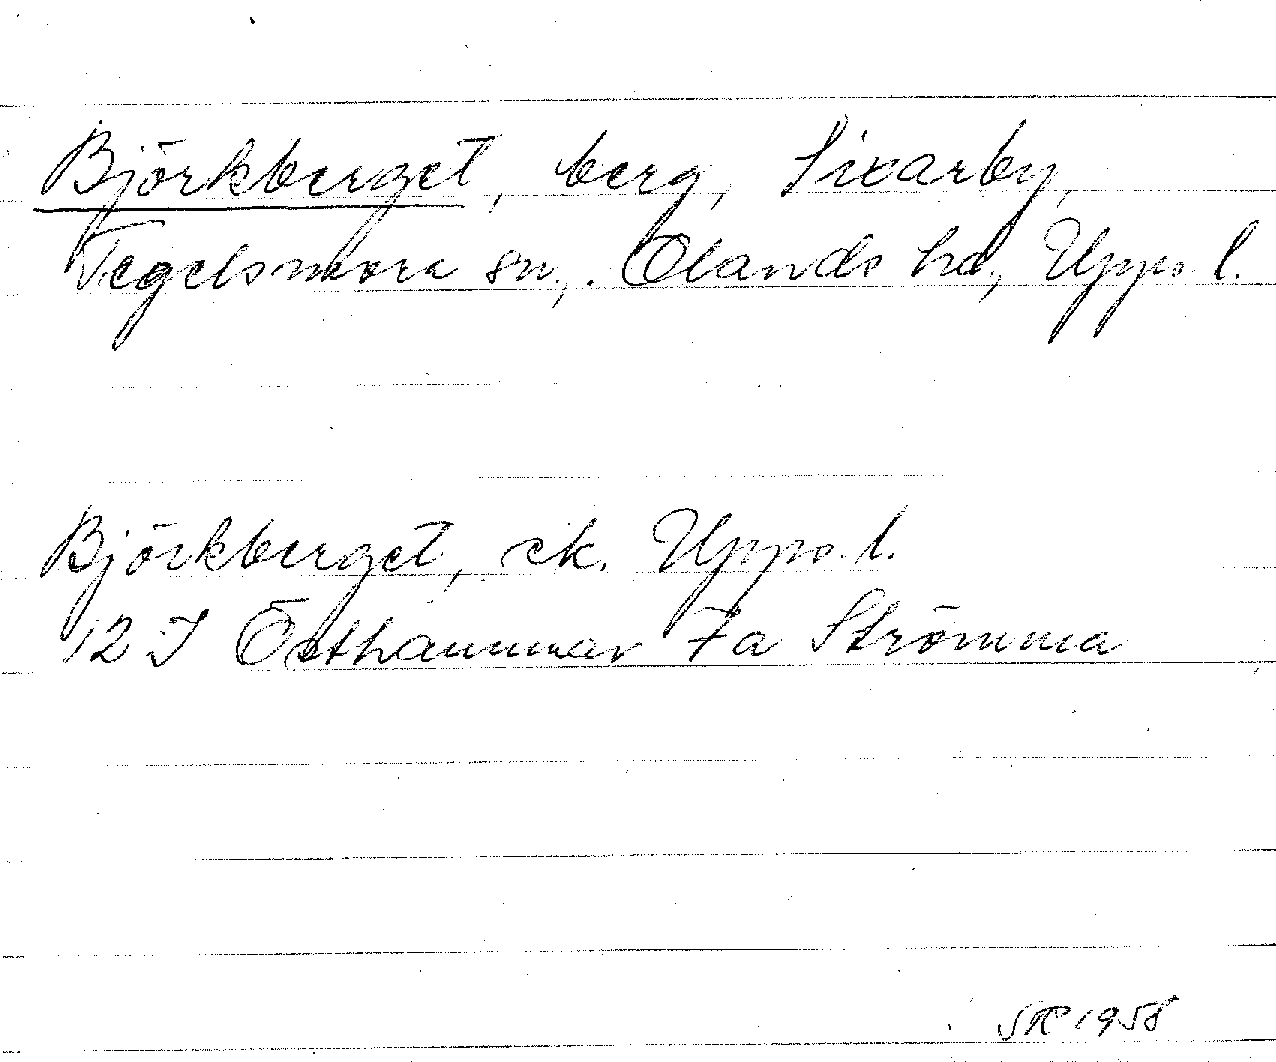 Björkberget, berg, Sixarby,
Tegelsmora sn., Olands hd, Upps. l.
Björkberget, ek. Upps. l.
12 I Östhammar 7a Strömma
1958